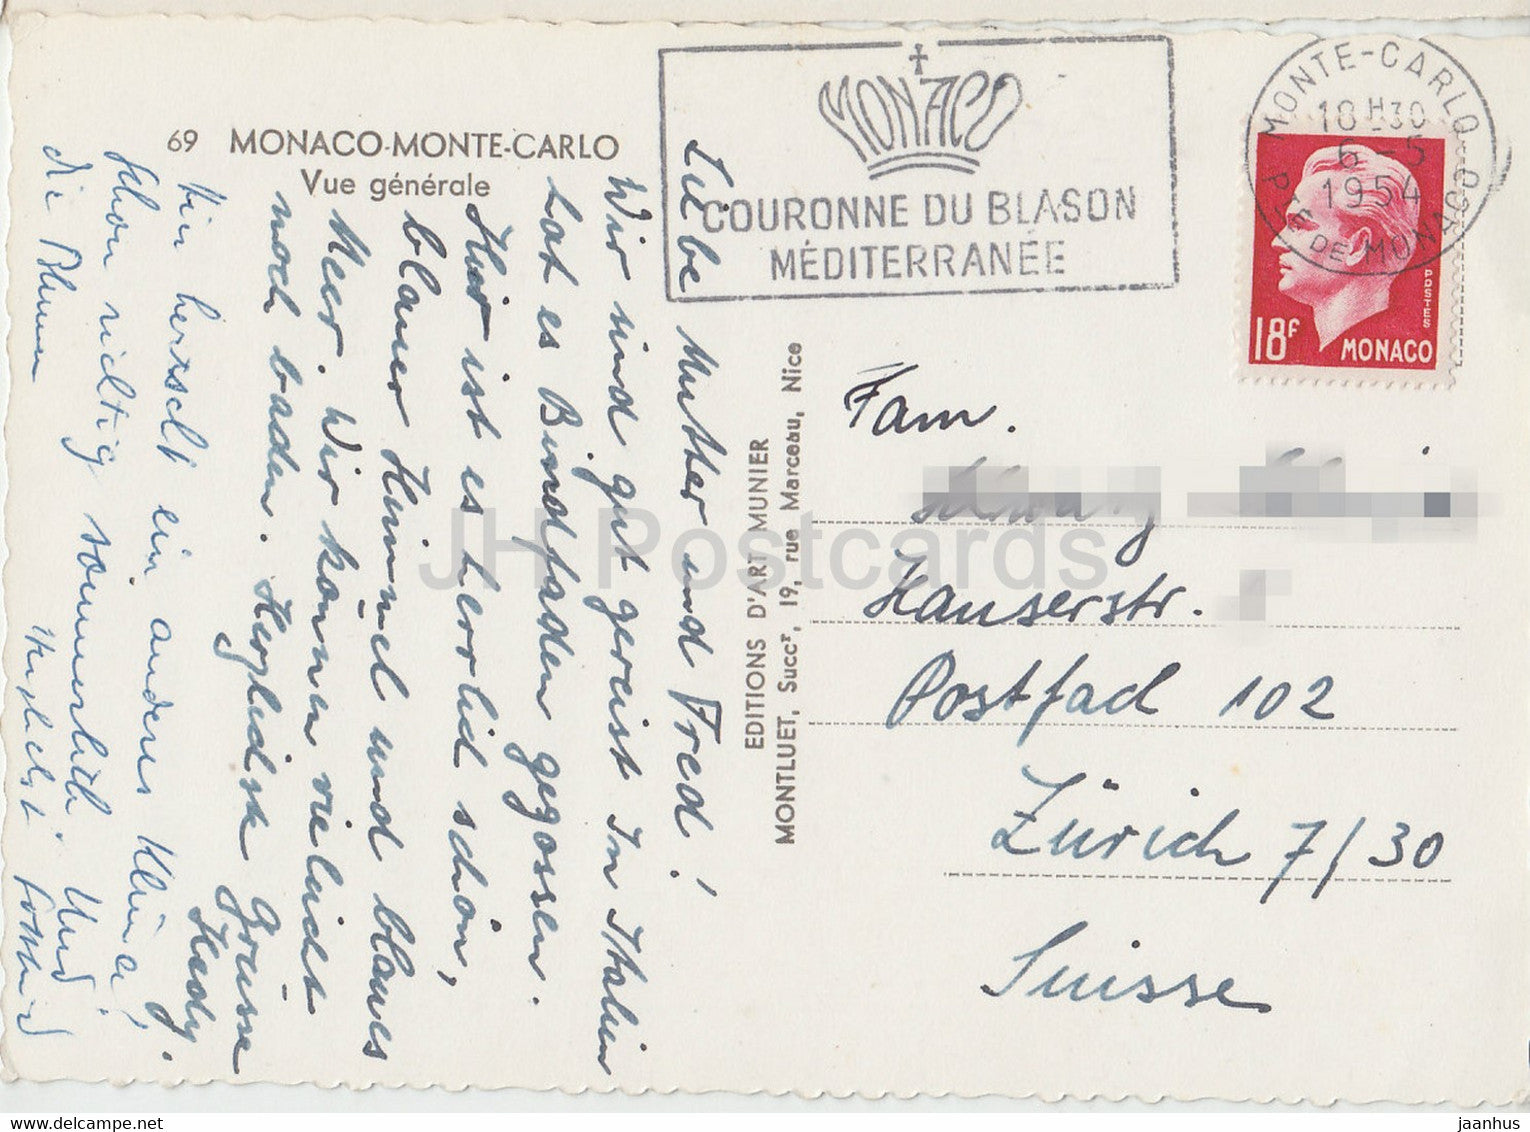 69 MONACO-MONTE-CARLO
Vue générale
MONACO
COURONNE DU BLASON
MÉDITERRANÉE
MONTE-CARLO
18H30
6-5
1954
PTÉ DE MONACO
POSTES
18F MONACO
Liebe Mutter und Fred!
Wir sind gut gereist. In Italien
hat es Bindfaden gegossen.
Hier ist es herrlich schön,
blauer Himmel und blaues
Meer. Wir können vieleicht
noch baden. Herzlichste Grüsse
Hedy.
Hier herrscht ein anderes Klima!
Schon richtig sommerlich. Und
die Blumen
EDITIONS D'ART MUNIER
MONTLUET, Succr, 19, rue Marceau, Nice
Fam.
Hauserstr.
Postfach 102
Zürich 7/30
Suisse
JH Postcards
jaanhus https://www.jhpostcards.com